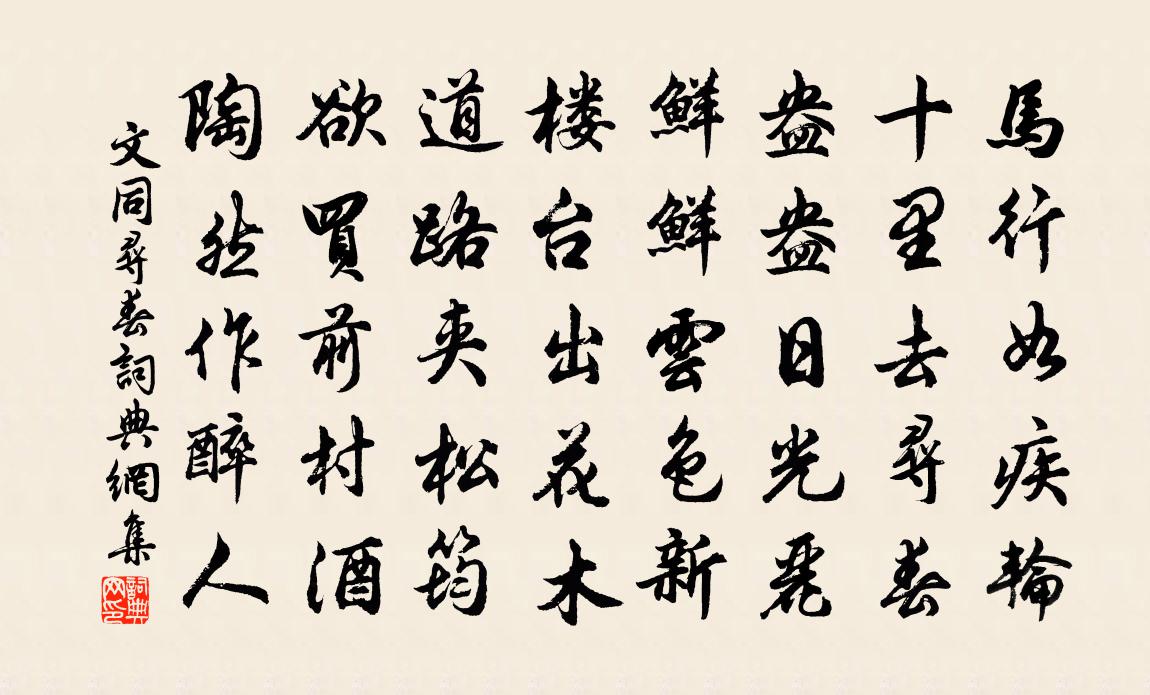 馬行如疾輪
十里去尋春
盎盎日光麗
鮮鮮雲色新
楼台出花木
道路夾松筠
欲買前村酒
陶然作醉人
文同尋春詞典網集
詞典網印